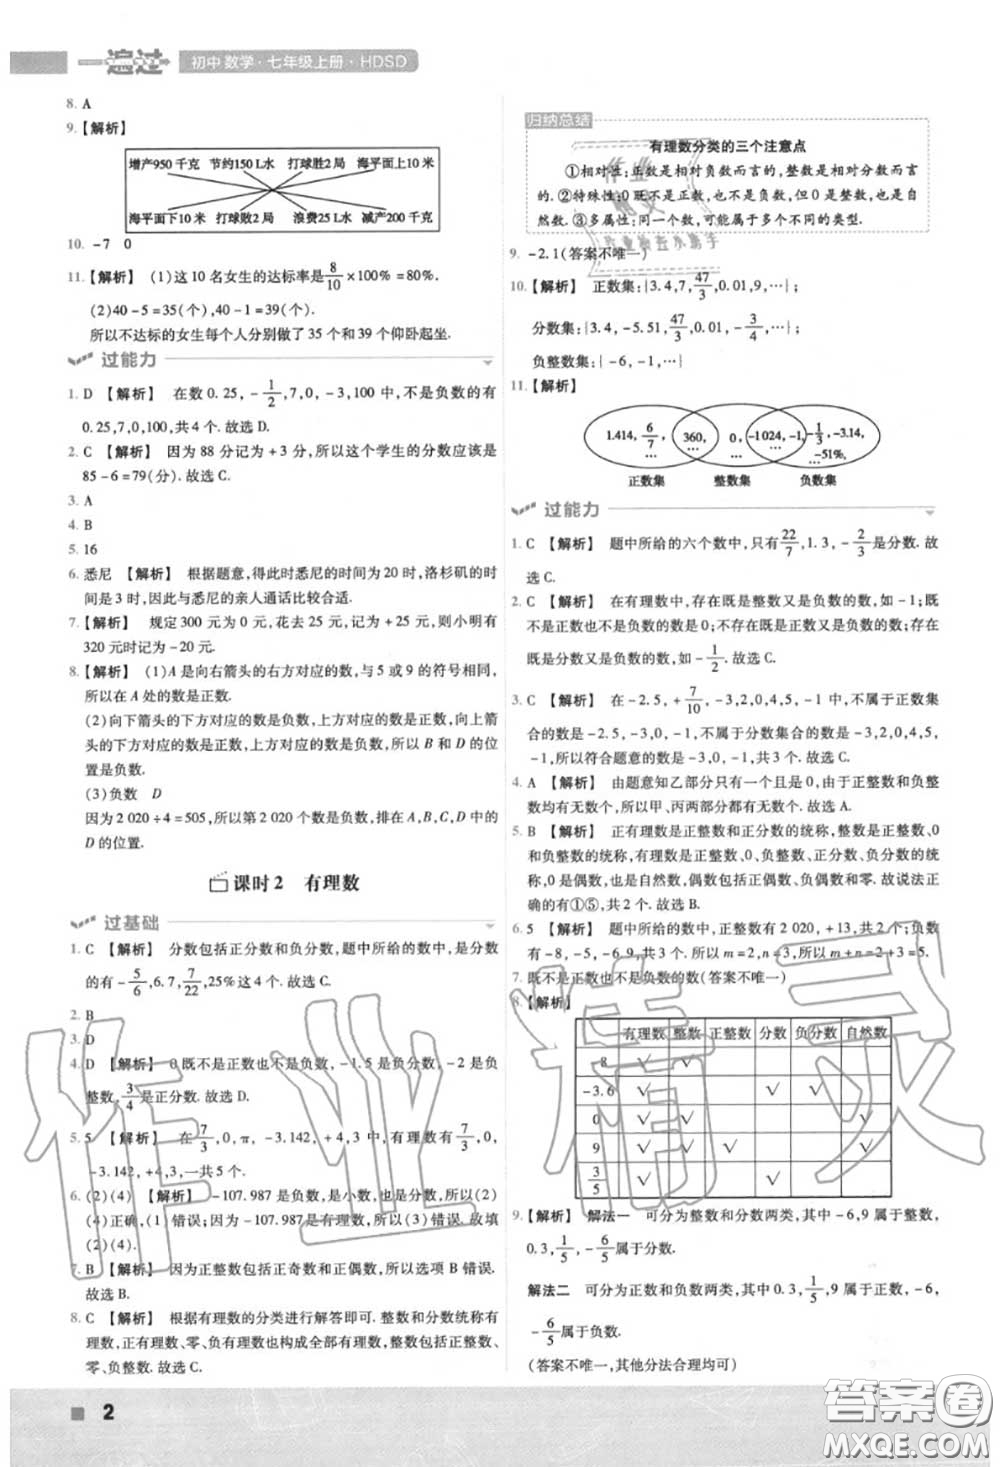 一遍过 初中 数学·七年级上册·HDSD
8. A
9.【解析】
增产950 千克 节约150 L水 打球胜2 局 海平面上10 米
海平面下10 米 打球败2 局 浪费25 L水 减产200 千克
10. -7 0
11.【解析】 (1)这 10 名女生的达标率是8/10×100% =80%.
(2)40-5=35(个),40-1=39(个),
所以不达标的女生每个人分别做了 35 个和 39 个仰卧起坐.
过能力
1. D 【解析】 在数 0. 25, -1/2,7,0, -3,100 中,不是负数的有
0.25,7,0,100,共 4 个. 故选 D.
2. C 【解析】 因为 88 分记为 +3 分,所以这个学生的分数应该是
85-6=79(分). 故选 C.
3. A
4. B
5. 16
6. 悉尼 【解析】 根据题意,得此时悉尼的时间为 20 时,洛杉矶的时
间是 3 时,因此与悉尼的亲人通话比较合适.
7.【解析】 规定 300 元为 0 元,花去 25 元,记为 +25 元,则小明有
320 元时记为 -20 元.
8.【解析】 (1)A 是向右箭头的右方对应的数,与 5 或 9 的符号相同,
所以在 A 处的数是正数.
(2)向下箭头的下方对应的数是负数,上方对应的数是正数,向上箭
头的下方对应的数是正数,上方对应的数是负数,所以 B 和 D 的位
置是负数.
(3)负数 D
因为 2 020÷4=505,所以第 2 020 个数是负数,排在 A,B,C,D 中的
D 的位置.
课时2 有理数
过基础
1. C 【解析】 分数包括正分数和负分数,题中所给的数中,是分数
的有 -5/6,6.7,7/22,25% 这 4 个. 故选 C.
2. B
3. D
4. D 【解析】 0 既不是正数也不是负数, -1.5 是负分数, -2 是负
整数,3/4是正分数. 故选 D.
5. 5 【解析】 在7/3,0,π, -3.142, +4,3 中,有理数有7/3,0,
-3.142, +4,3,一共 5 个.
6. (2)(4) 【解析】 -107.987 是负数,是小数,也是分数,所以(2)
(4)正确,(1) 错误;因为 -107.987是有理数,所以(3) 错误. 故填
(2)(4).
7. B 【解析】 因为正整数包括正奇数和正偶数,所以选项 B 错误.
故选 B.
8. C 【解析】 根据有理数的分类进行解答即可. 整数和分数统称有
理数,正有理数、零、负有理数也构成全部有理数,整数包括正整数、
零、负整数. 故选 C.
归纳总结
有理数分类的三个注意点
①相对性:正数是相对负数而言的,整数是相对分数而言
的. ②特殊性:0 既不是正数,也不是负数,但 0 是整数,也是自
然数. ③多属性:同一个数,可能属于多个不同的类型.
9. -2.1(答案不唯一)
10.【解析】 正数集:{3.4,7,47/3,0.01,9,…};
分数集:{3.4, -5.51,47/3,0.01, -3/4,…};
负整数集:{-6, -1,…}.
11.【解析】
1.414, 6/7 … 360, … 0, … -1 024, -1, … -1/3, -3.14, -51%, …
正数集 整数集 负数集
过能力
1. C 【解析】 题中所给的六个数中,只有22/7,1.3, -2/3是分数. 故
选 C.
2. C 【解析】 在有理数中,存在既是整数又是负数的数,如 -1;既
不是正数也不是负数的数是 0;不存在既是正数又是负数的数;存
在既是分数又是负数的数,如 -1/2. 故选 C.
3. C 【解析】 在 -2.5, +7/10, -3,2,0,4,5, -1 中,不属于正数集
合的数是 -2.5, -3,0, -1,不属于分数集合的数是 -3,2,0,4,5,
-1,所以符合题意的数是 -3,0, -1,共 3 个. 故选 C.
4. A 【解析】 由题意知乙部分只有一个且是 0,由于正整数和负整
数均有无数个,所以甲、丙两部分都有无数个. 故选 A.
5. B 【解析】 正有理数是正整数和正分数的统称,整数是正整数、0
和负整数的统称,有理数是正整数、0、负整数、正分数、负分数的统
称,0 是偶数,也是自然数,偶数包括正偶数、负偶数和零. 故说法正
确的有①⑤,共 2 个. 故选 B.
6. 5 【解析】 题中所给的数中,正整数有 2 020, +13,共 2 个;负数
有 -8, -5, -6.9,共 3 个. 所以 m=2,n=3,所以 m+n=2+3=5.
7. 既不是正数也不是负数的数(答案不唯一)
8.【解析】
有理数 整数 正整数 分数 负分数 自然数
-8 √ √
-3.6 √ √ √
0 √ √ √
9 √ √ √ √
3/5 √ √
9.【解析】 解法一 可分为整数和分数两类,其中 -6,9 属于整数,
0.3,1/5, -6/5属于分数.
解法二 可分为正数和负数两类,其中 0.3,1/5,9 属于正数, -6,
-6/5属于负数.
(答案不唯一,其他分法合理均可)
作业精灵
2
答案圈
MXQE.COM